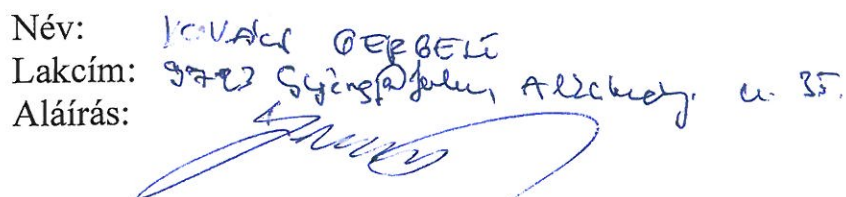 Név: KOVÁCS GERGELY
Lakcím: 9723 Gyöngyösfalu, u. 35.
Aláírás: